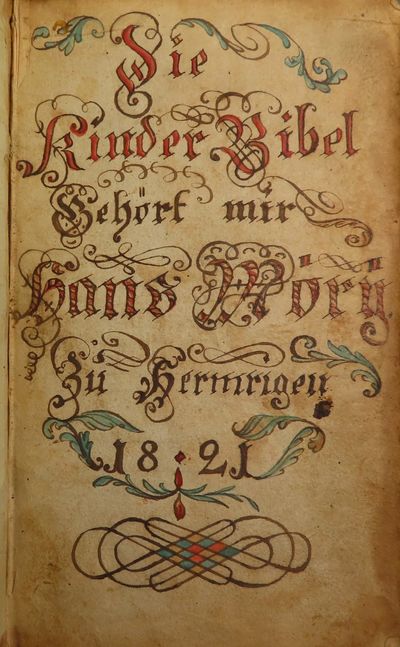 Die
Kinder Bibel
Gehört mir
Hans Möri
Zu Hermrigen
18.21